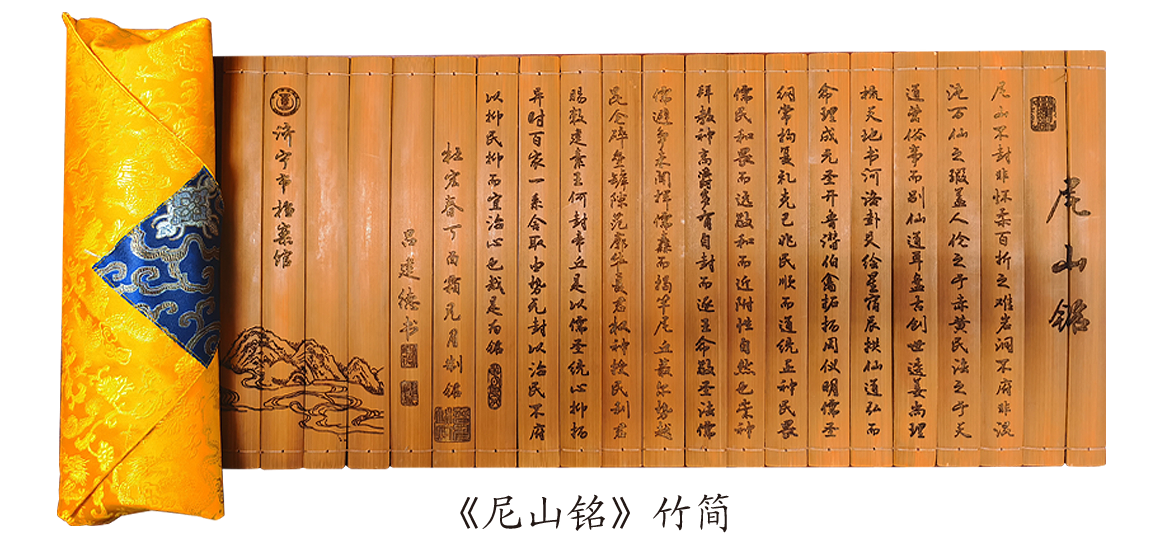 尼山铭
尼山不封非怀柔百折之难岩洞不府非混
沌百仙之瑕盖人伦之于赤黄民法之于天
道营俗帝而别仙道耳盘古创世造尚理
梳天地书河洛卦爻绘星宿辰拱仙道弘而
命理成元圣开鲁潜伯禽拓周仪明儒圣
纲常构复礼克己兆民顺而道统立神民畏
儒民和畏而远敬和而近附性自然也崇神
拜教神高爵多有自封而近王命敬圣法儒
儒避乡来闻择儒而揭竿尼丘尔势越
昆仑碎垒罅隙范廓华夏君权神授民制君
赐教建素王何封丘是以儒圣统心抑拓
异时百家一系舍取由势无封以治民不府
以抑民抑而宜治心也哉是为铭
杜宏春丁酉霜月制铭
吕建德书
济宁市档案馆
《尼山铭》竹简